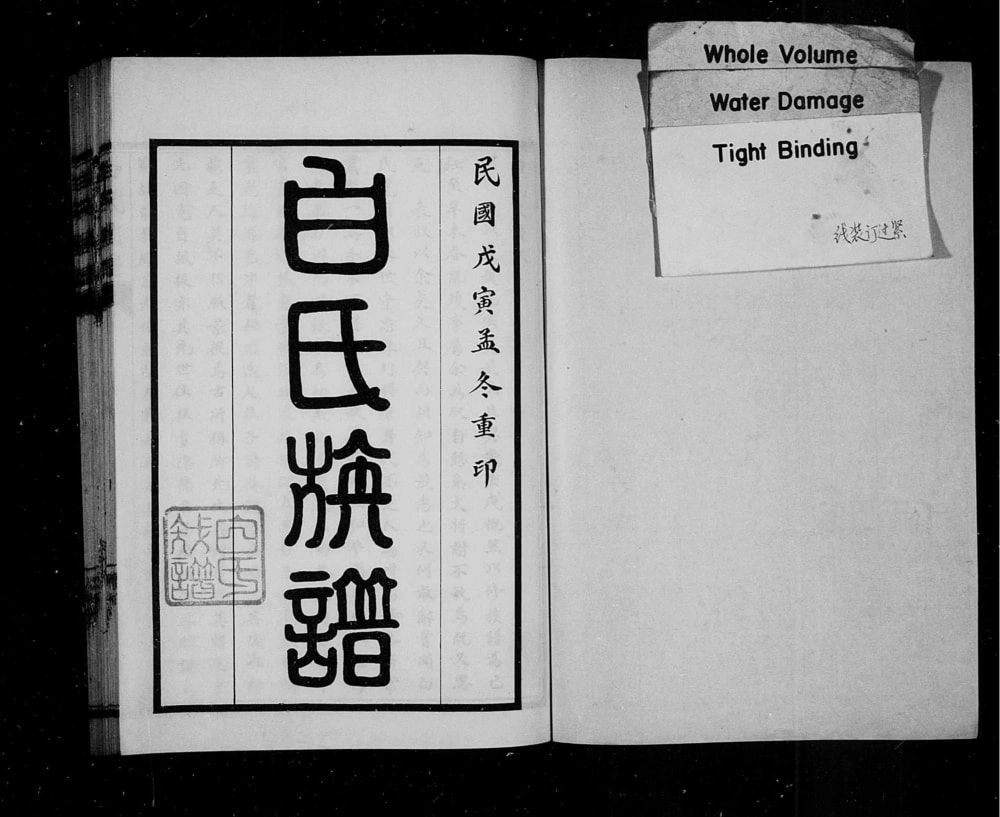 民國戊寅孟冬重印
白氏族譜
白氏族譜
Whole Volume
Water Damage
Tight Binding
线装订过紧